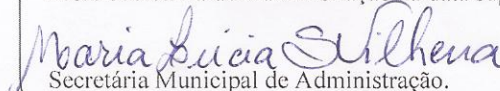 Maria Lúcia S Vilhena
Secretária Municipal de Administração.